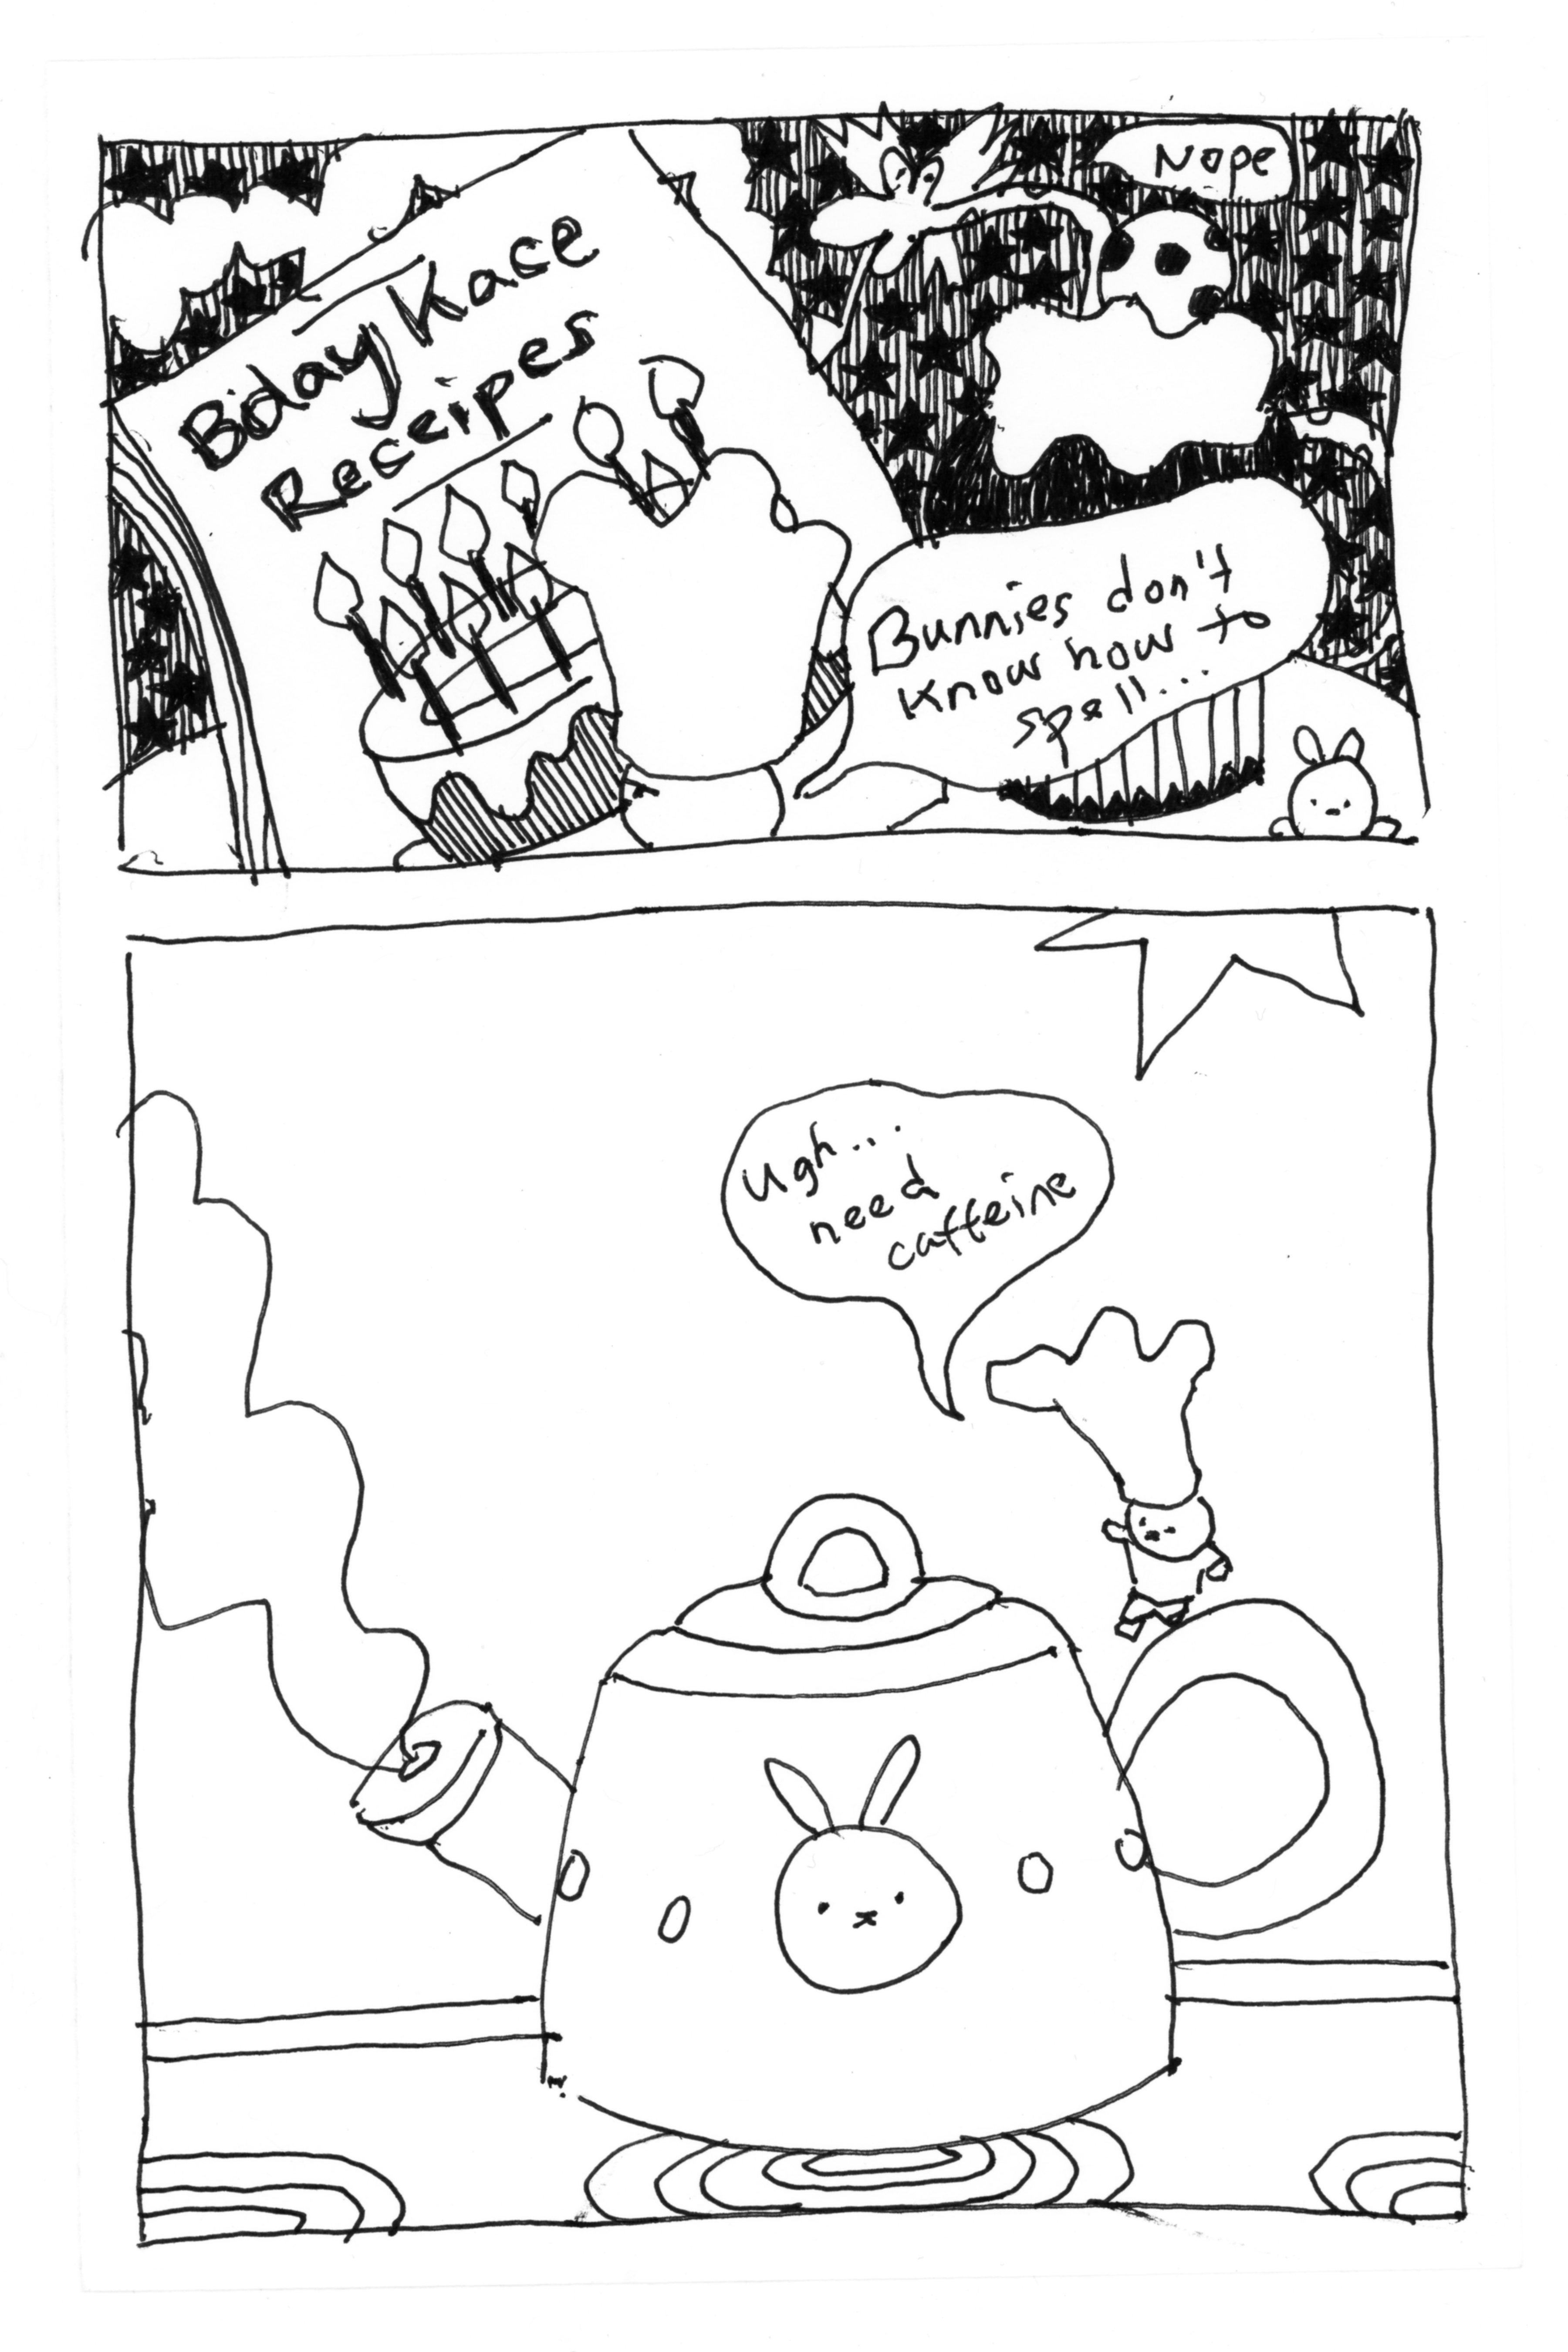 B'day Kace
Receipes
Nope
Bunnies don't
know how to
spell...
Ugh....
need
caffeine